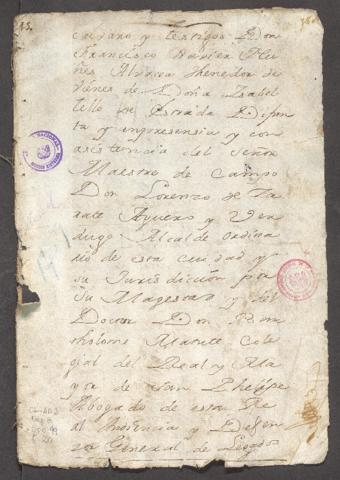 15.
y testigos Don
Francisco Xavier
Albacea thenedor de
vienes de Doña Isabel
tello de Estrada Difun
ta y en presensia y con
asistencia del Señor
Maestre de Campo
Don Lorenzo de Za
rate Aguero y Ver
dugo Alcalde ordina
rio de esta ciudad y
su Jurisdiccion por
su Magestad y del
Doctor Don
tholome Cole
gial del Real y Ma
yor de san Phelipe
Abogado de esta Re
al Audiencia y Defen
zor General de